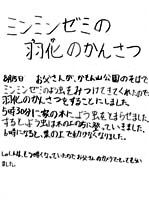 ミンミンゼミの
羽化のかんさつ
8月15日 お父さんが、かもん山公園のそばで
ミンミンゼミのよう虫をみつけてきてくれたので、
羽化のかんさつをすることにしました。
5時30分に家の木によう虫をとまらせました。
するとよう虫は木の上の方に登っていきました。
6時になると、葉の上でもうごかなくなりました。
しゃしんは、もう暗くなっていたのでお父さんの
ました。